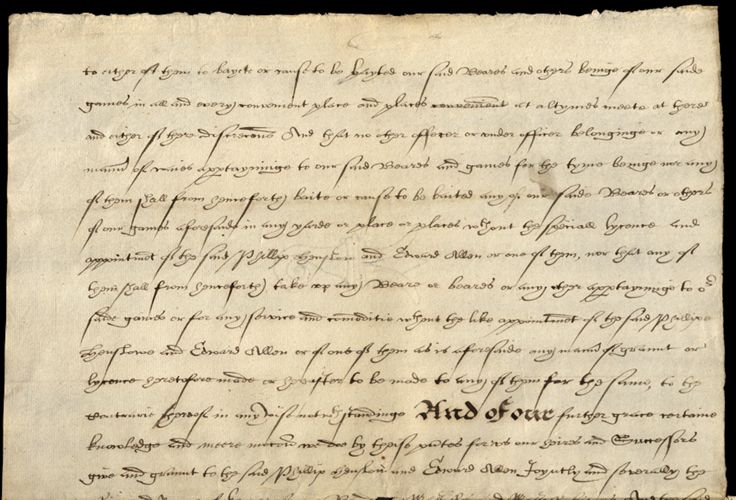 to either of them to bayte or cause to be bayted our said Beares and others beinge of our saide
games in all and every convenient place and places convenient at all tymes meete at there
and either of there discrecons And that no other officer or under officer belonginge or any
mann of waies apptayninge to our said Beares and games for the tyme beinge nor any
of them shall from henceforth baite or cause to be baited any of our saide Beares or others
of our games aforesaide in any yarde or place or places wthout the speciall lycence and
appointmt of the said Phillip Henslow and Edward Allen or one of them, nor that any of
them shall from henceforth take up any Beare or beares or any other apptayninge to or
saide games or for any service and comoditie wthout the like appointmt of the said Phillipe
Henslowe and Edward Allen or of one of them as is aforesaide any mann of graunt or
lycence heretofore made or hereafter to be made to any of them for the same, to the
contrarie thereof in any wise notwthstandinge And of our further grace certaine
knowledge and meere mocon we doe by theise pntes for us our heires and Successors
give and graunt to the said Phillip Henslow and Edward Allen Joyntly and severally the